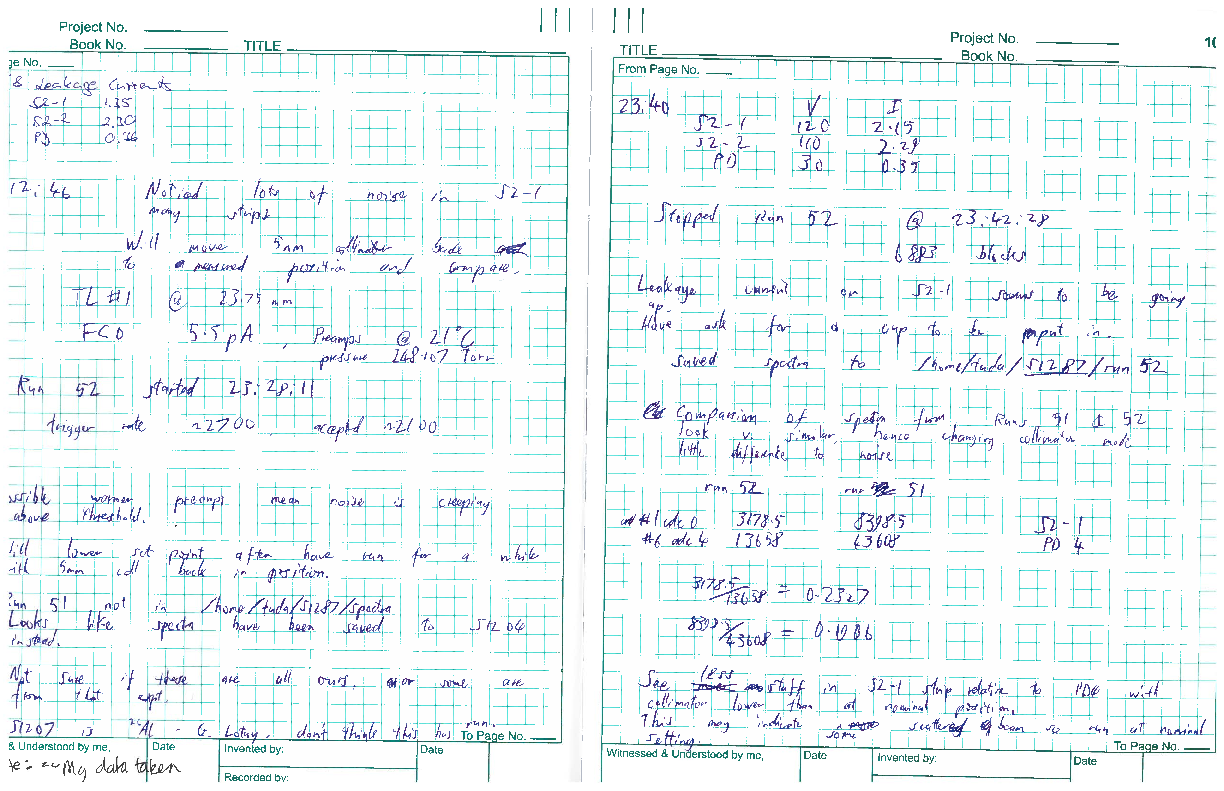 Project No.
Book No. TITLE
ge No.
& Leakage Currents
S2-1 1.35
S2-2 2.20
PD 0.36
12:46 Noticed lots of noise in S2-1
many strips
Will move 5mm collimator back
to measured position and compare.
TL #1 @ 23.75 mm
FC0 5.5 pA, Preamps @ 21°C
pressure Torr
Run 52 started 23:28:11
trigger rate ~2700 accepted ~2100
ssible warmer preamps mean noise is creeping
above threshold.
ill lower set point after have run for a while
ith 5mm coll back in position.
Run 51 not in /home/tuda/S1287/spectra
Looks like spectra have been saved to S1206
instead.
Not sure if these are all ours, or some are
from that expt.
S1207 is Al - G. Lotay, don't think this has run.
To Page No.
& Understood by me, Date Invented by: Date
Recorded by:
My data taken
Project No.
Book No.
10
TITLE
From Page No.
23:40 V I
S2-1 120 2.15
S2-2 110 2.29
PD 30 0.35
Stopped run 52 @ 23:42:28
6883 blocks
Leakage current on S2-1 seems to be going
up.
Have ask for a cup to be put in.
Saved spectra to /home/tuda/S1287/run 52
Comparison of spectra from Runs 51 & 52
look v. similar hence changing collimator made
little difference to noise
run 52 run 51
#1 adc 0 3178.5 8398.5 S2-1
#6 adc 4 13658 43608 PD 4
3178.5/13658 = 0.2327
8398.5/43608 = 0.1926
See less stuff in S2-1 strip relative to PD4 with
collimator lower than at nominal position.
This may indicate some scattered beam so run at nominal
setting.
To Page No.
Witnessed & Understood by me, Date Invented by: Date